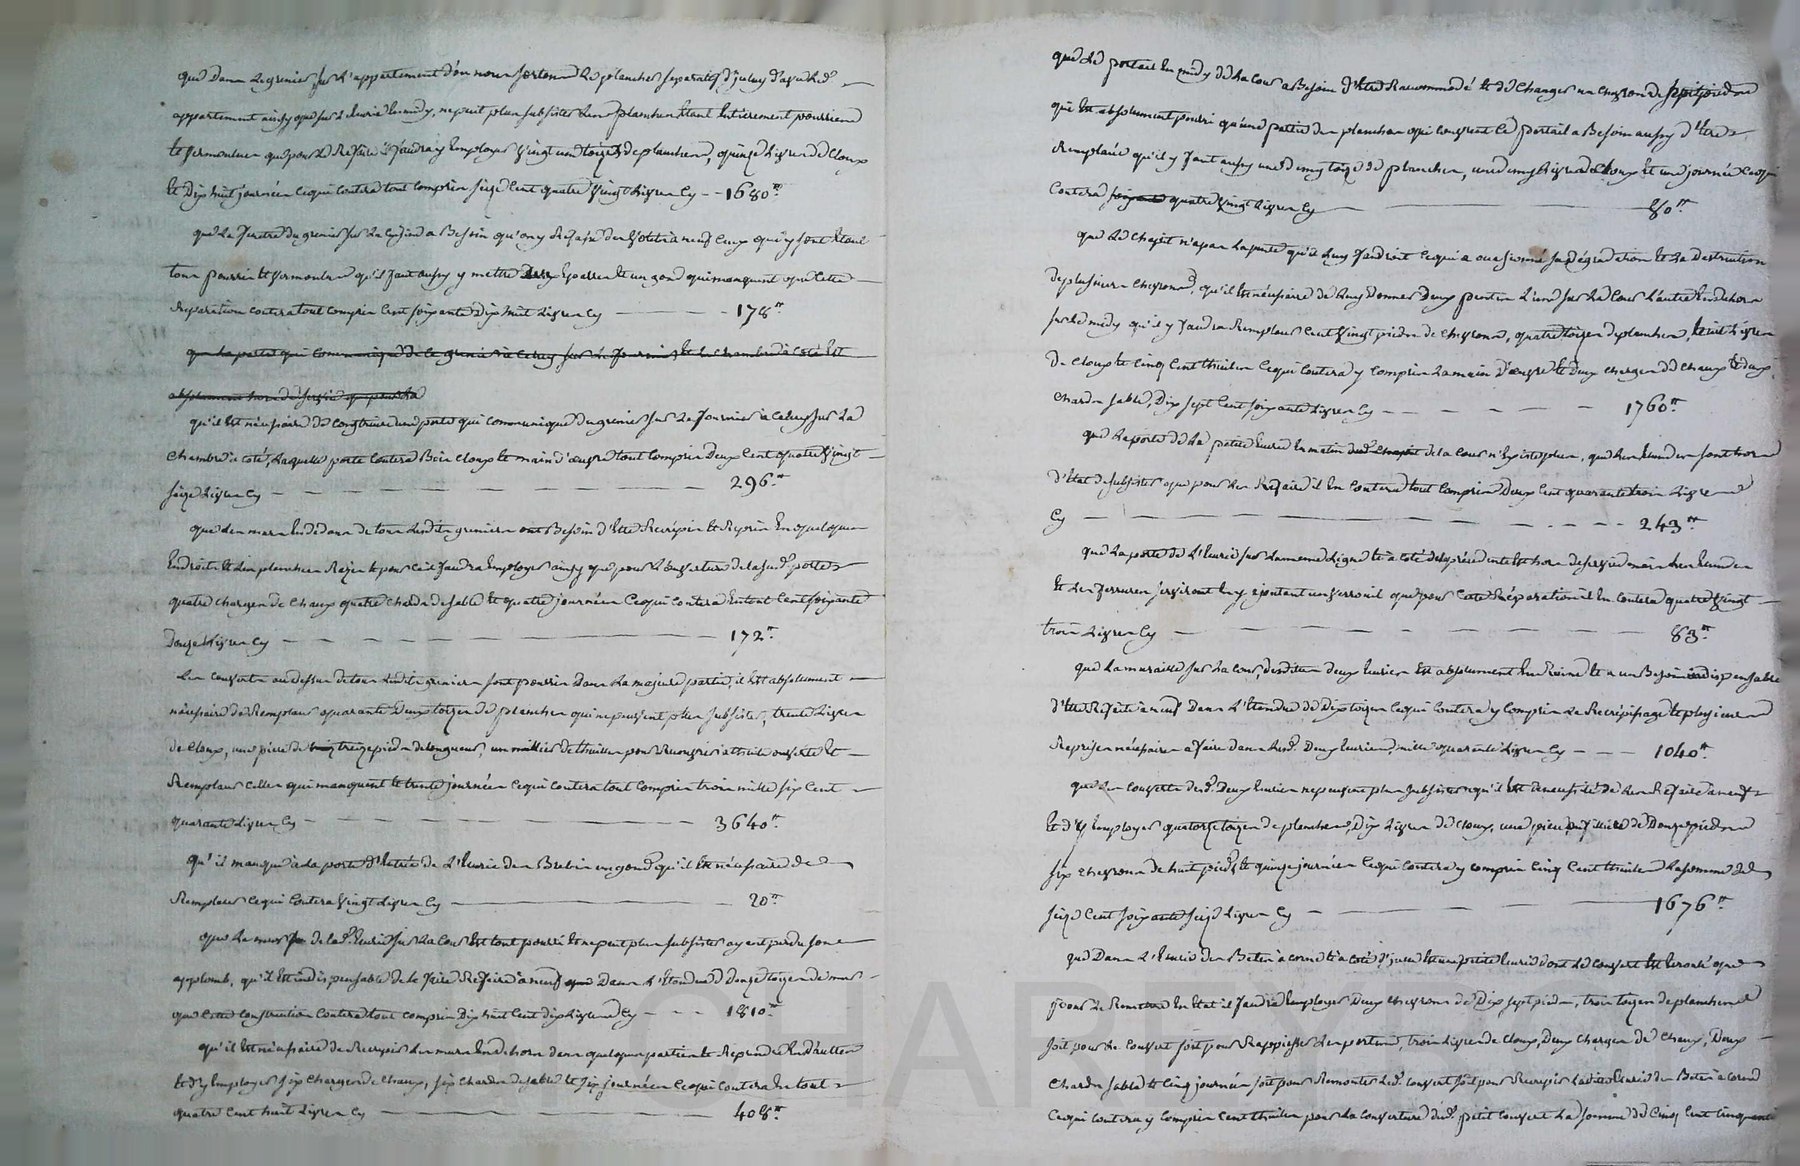 que dans le grenier sur l'appartement d'ou nous sortons les planches separatif d'iceluy d'avec led.
appartement ainsy que sur l'ecurie en midy, ne peut plus subsister les planches etant entierement pourries
et vermoulues que pour le refaire il faudra y employer vingt une toizes de planches, quinze livres de cloux
et dix huit journées ce qui coutera tout compris seize cent quatre vingt livres cy -- 1680ᵗᵗ
que la fenetre du grenier sur la cuisine a besoin qu'on y refasse des volets a neuf ceux qui y sont etant
tous pourris et vermoulus qu'il faut aussy y mettre deux eparres et un gond qui manquent que cette
reparation coutera tout compris cent soixante dix huit livres cy — 178ᵗᵗ
que la porte qui communique de ce grenier a celuy sur le fournier et la chambre a coté est
absolument hors de service
qu'il est nécessaire de construire une porte qui communique du grenier sur le fournier a celuy sur la
chambre a coté, laquelle porte coutera bois cloux et main d'œuvre tout compris deux cent quatre vingt
seize livres cy — 296ᵗᵗ
que les murs en dedans de tous lesdits greniers ont besoin d'etre recrepis et repris en quelques
endroits et les planches et pour ce il faudra employer ainsy que pour l'ouverture de lad. porte
quatre charges de chaux quatre chards de sable et quatre journées ce qui coutera en tout cent soixante
douze livres cy — 172ᵗᵗ
Les couverts au dessus de tous lesdits greniers sont pourris dans la majeure partie, il est absolument
nécessaire de remplacer quarante deux toizes de planches qui ne peuvent plus subsister, trente livres
de cloux, une piece de treize pieds de longueur, un millier de thuiles pour recouvrir et
remplacer celles qui manquent et trente journées ce qui coutera tout compris trois mille six cent
quarante livres cy — 3640ᵗᵗ
qu'il manque a la porte d'entrée de l'ecurie des brebis un gond qu'il est nécessaire de
remplacer ce qui coutera vingt livres cy — 20ᵗᵗ
que le mur de lad. ecurie sur la cour est tout pourri et ne peut plus subsister ayant perdu son
applomb, qu'il est indispensable de le faire refaire a neuf dans l'etendue de douze toizes de mur
que cette construction coutera tout compris dix huit cent dix livres cy - - - 1810ᵗᵗ
qu'il est nécessaire de recrepir les murs en dehors dans quelques parties et reprendre en d'autres
et d'y employer six charges de chaux, six chards de sable et six journées ce qui coutera en tout
quatre cent huit livres cy — 408ᵗᵗ
que le portail en midy de la cour a besoin d'etre raccommodé et de changer un chevron de sept pieds
qui est absolument pourri qu'une partie des planches qui couvrent ce portail a besoin aussy d'etre
remplacée qu'il y faut aussy une demy toize de planches, une demy livre de cloux et une journée ce qui
coutera soixante quatre vingt livres cy — 80ᵗᵗ
que le chapit n'a pas la pente qu'il luy faudroit ce qui a occasionné sa dégradation et la destruction
de plusieurs chevrons, qu'il est nécessaire de luy donner deux pentes l'une sur la cour l'autre en dehors
sur le midy qu'il y faudra remplacer cent vingt pieds de chevrons, quatre toizes de planches, huit livres
de cloux et cinq cent thuiles ce qui coutera y compris la main d'œuvre et deux charges de chaux et deux
chards sable, dix sept cent soixante livres cy — 1760ᵗᵗ
que la porte de la petite ecurie en matin de la cour n'existe plus, que les sont hors
d'etat de subsister que pour les refaire il en coutera tout compris deux cent quarante trois livres
cy — 243ᵗᵗ
que la porte de l'ecurie sur la meme ligne et a coté de la précédente est hors de service mais les
et les ferrures serviront en y ajoutant un verrouil que pour cette réparation il en coutera quatre vingt
trois livres cy — 83ᵗᵗ
que la muraille sur la cour, desdites deux ecuries est absolument en ruine et a un besoin indispensable
d'etre refaite a neuf dans l'etendue de dix toizes ce qui coutera y compris le recrépissage et plusieurs
reprises nécessaires a faire dans lesd. deux ecuries, mille quarante livres cy - - - 1040ᵗᵗ
que les couverts desd. deux ecuries ne peuvent plus subsister qu'il est de necessité de les refaire a neuf
et d'y employer quatorze toizes de planches, dix livres de cloux, une piece de douze pieds
six chevrons de huit pieds et quinze journées ce qui coutera y compris cinq cent thuiles la somme de
seize cent soixante seize livres cy — 1676ᵗᵗ
que dans l'ecurie des betes a corne et a coté d'icelle est une petite ecurie dont le couvert est ecroulé que
pour le remettre en etat il faudra employer deux chevrons de dix sept pieds, trois toizes de planches
soit pour le couvert soit pour les portes, trois livres de cloux, deux charges de chaux, deux
chards sable et cinq journées soit pour remonter led. couvert soit pour recrepir ladite ecurie des betes a corne
ce qui coutera y compris cent thuiles pour la couverture dud. petit couvert la somme de cinq cent cinquante
CHAREY